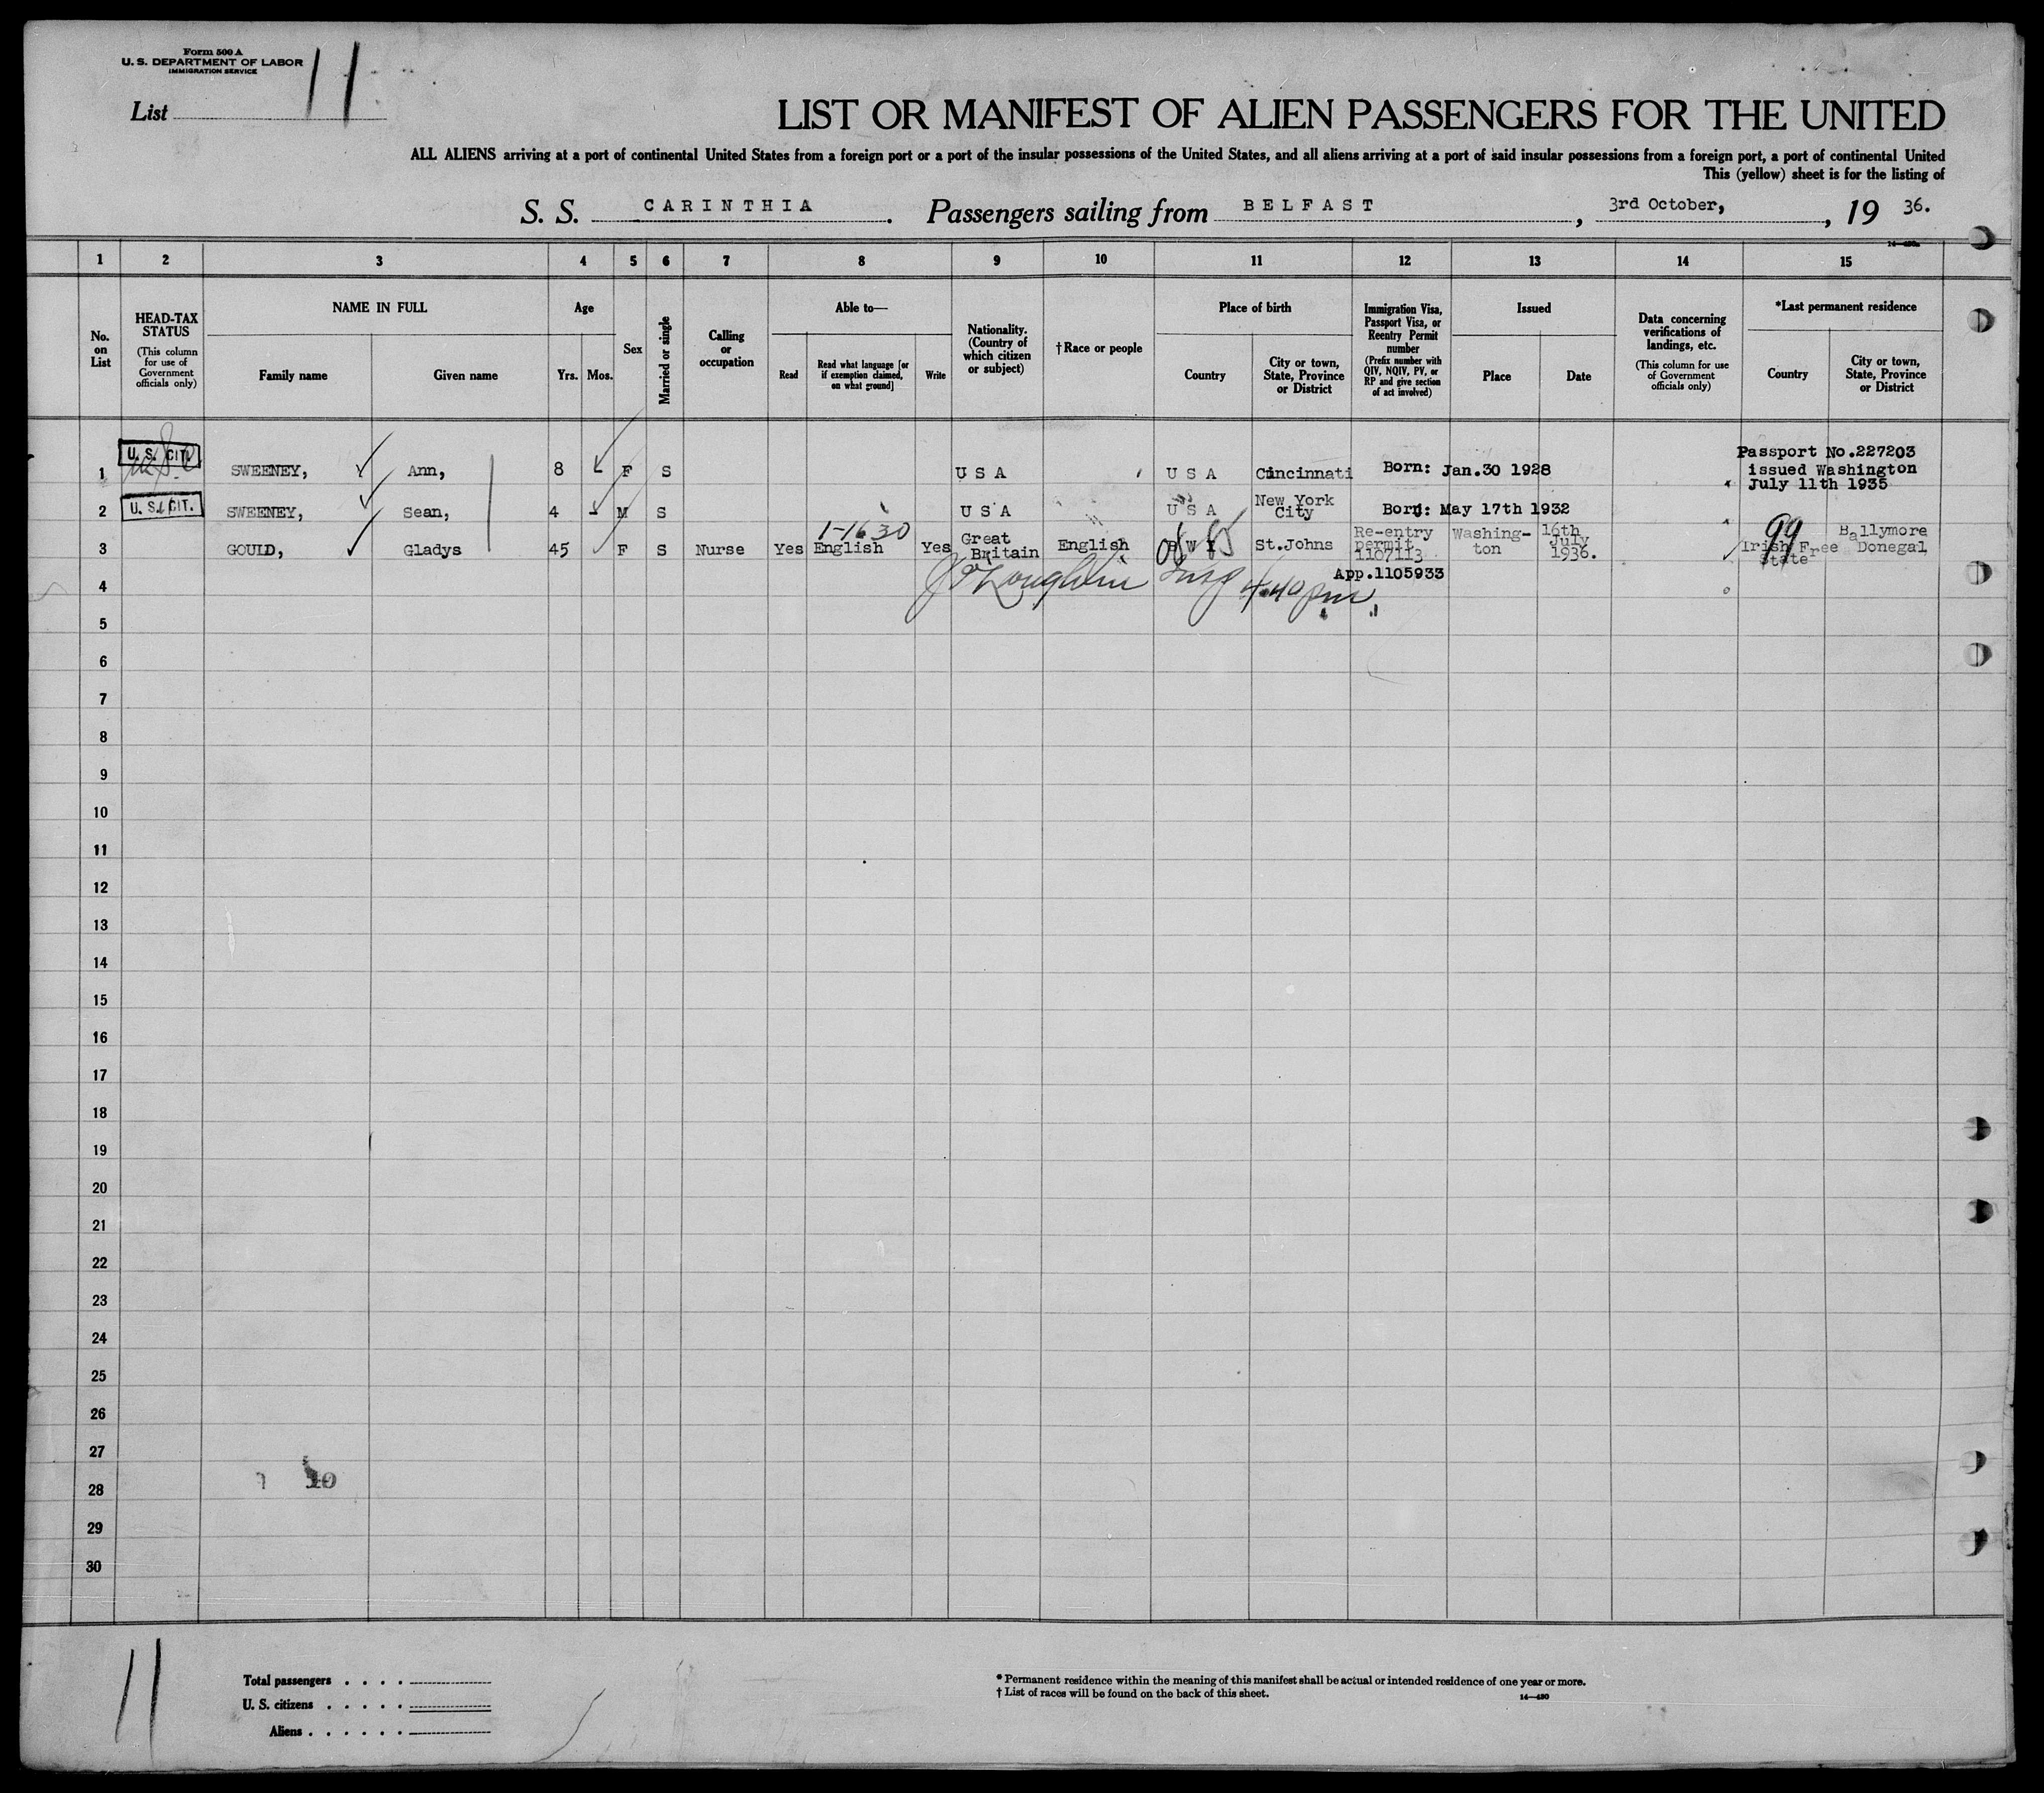 Form 500 A
U. S. DEPARTMENT OF LABOR
IMMIGRATION SERVICE
List 11
LIST OR MANIFEST OF ALIEN PASSENGERS FOR THE UNITED
ALL ALIENS arriving at a port of continental United States from a foreign port or a port of the insular possessions of the United States, and all aliens arriving at a port of said insular possessions from a foreign port, a port of continental United
This (yellow) sheet is for the listing of
S. S. CARINTHIA. Passengers sailing from BELFAST, 3rd October, , 19 36.
14—430a
1 2 3 4 5 6 7 8 9 10 11 12 13 14 15
No. on List
HEAD-TAX STATUS (This column for use of Government officials only)
NAME IN FULL
Family name
Given name
Age
Yrs. Mos.
Sex
Married or single
Calling or occupation
Able to—
Read
Read what language [or if exemption claimed, on what ground]
Write
Nationality. (Country of which citizen or subject)
†Race or people
Place of birth
Country
City or town, State, Province or District
Immigration Visa, Passport Visa, or Reentry Permit number (Prefix number with QIV, NQIV, PV, or RP and give section of act involved)
Issued
Place
Date
Data concerning verifications of landings, etc. (This column for use of Government officials only)
*Last permanent residence
Country
City or town, State, Province or District
1 U. S. CIT. SWEENEY, Ann, 8 - F S U S A U S A Cincinnati Born: Jan.30 1928 Passport No.227203 issued Washington July 11th 1935
2 U. S. CIT. SWEENEY, Sean, 4 - M S U S A U S A New York City Born: May 17th 1932
1-1630
3 GOULD, Gladys 45 F S Nurse Yes English Yes Great Britain English B W I St.Johns Re-entry permit 1107113 Washing-ton 16th July 1936. 99 Irish Free State Ballymore Donegal
App.1105933
4 4.40 pm
5
6
7
8
9
10
11
12
13
14
15
16
17
18
19
20
21
22
23
24
25
26
27
28
29
30
10
11
Total passengers . . . .
U. S. citizens . . . . .
Aliens . . . . . .
* Permanent residence within the meaning of this manifest shall be actual or intended residence of one year or more.
† List of races will be found on the back of this sheet.
14—430